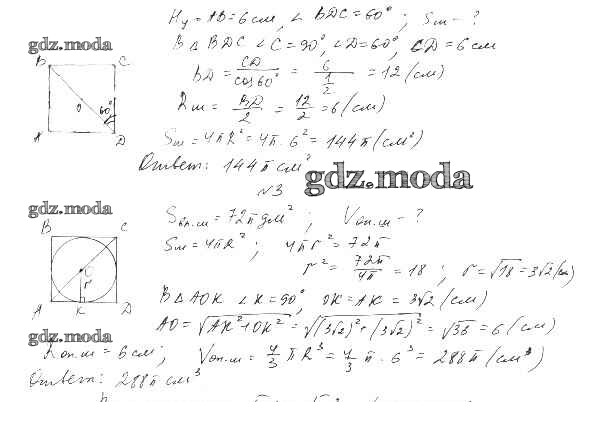 Hц = AB = 6 см, ∠ BDC = 60°; Sш - ?
gdz.moda
В △ BDC ∠C = 90°, ∠D = 60°, CD = 6 см
B C
BD = CD/cos60° = 6/(1/2) = 12 (см)
O 60°
Rш = BD/2 = 12/2 = 6 (см)
A D
Sш = 4πR² = 4π · 6² = 144π (см²)
Ответ: 144π см²
gdz.moda
N3
gdz.moda
Sвп.ш = 72π дм²; Vоп.ш - ?
B C
Sш = 4πR²; 4πr² = 72π
O
r
r² = 72π/4π = 18; r = √18 = 3√2 (см)
A K D
В △ AOK ∠K = 90°, OK = AK = 3√2 (см)
AO = √AK² + OK² = √(3√2)² + (3√2)² = √36 = 6 (см)
gdz.moda
Rоп.ш = 6 см; Vоп.ш = 4/3 πR³ = 4/3 π · 6³ = 288π (см³)
Ответ: 288π см³